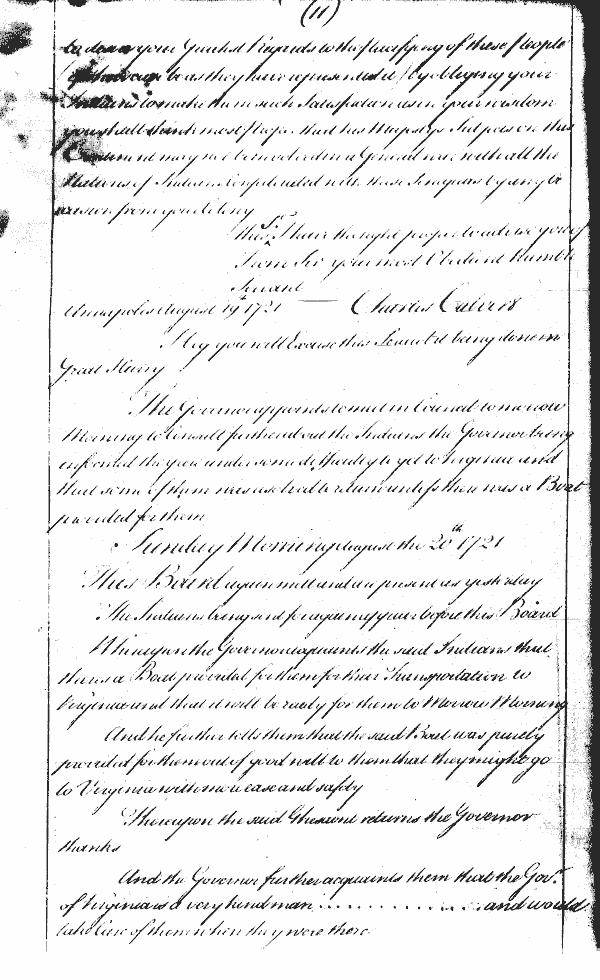 (11)
your Greatest Regards to the of these People
be as they have represented it) by obliging your
Indians to make them such Satisfaction as in your wisdom
you shall think most I hope that his Majestys Subjects on this
may not be involved in a General war with all the
Nations of Indians Confederated with these by any
from your Colony
This Sr. I have thought proper to advise you of
I am Sir your most Obedient Humble
Servant
Annapolis August 19th 1721 — Charles Calvert
I beg you will Excuse this being done in
great Hurry
The Governor appoints to meet in Council to morrow
Morning to Consult further about the Indians the Governor being
informed they are under some difficulty to get to Virginia and
that some of them was resolved to return unless there was a Boat
provided for them
Sunday Morning August the 20th 1721
This Board again mett and are present as yesterday
The Indians being sent for again appear before this Board
Whereupon the Governor acquaints the said Indians that
there is a Boat provided for them for their Transportation to
Virginia and that it will be ready for them to Morrow Morning
And he further tells them that the said Boat was purely
provided for them out of good will to them that they might go
to Virginia with more ease and safety
Thereupon the said returns the Governor
thanks
And the Governor further acquaints them that the Govr.
of Virginia is a very kind man . . . . . . . . . . . . . . . and would
take Care of them when they were there